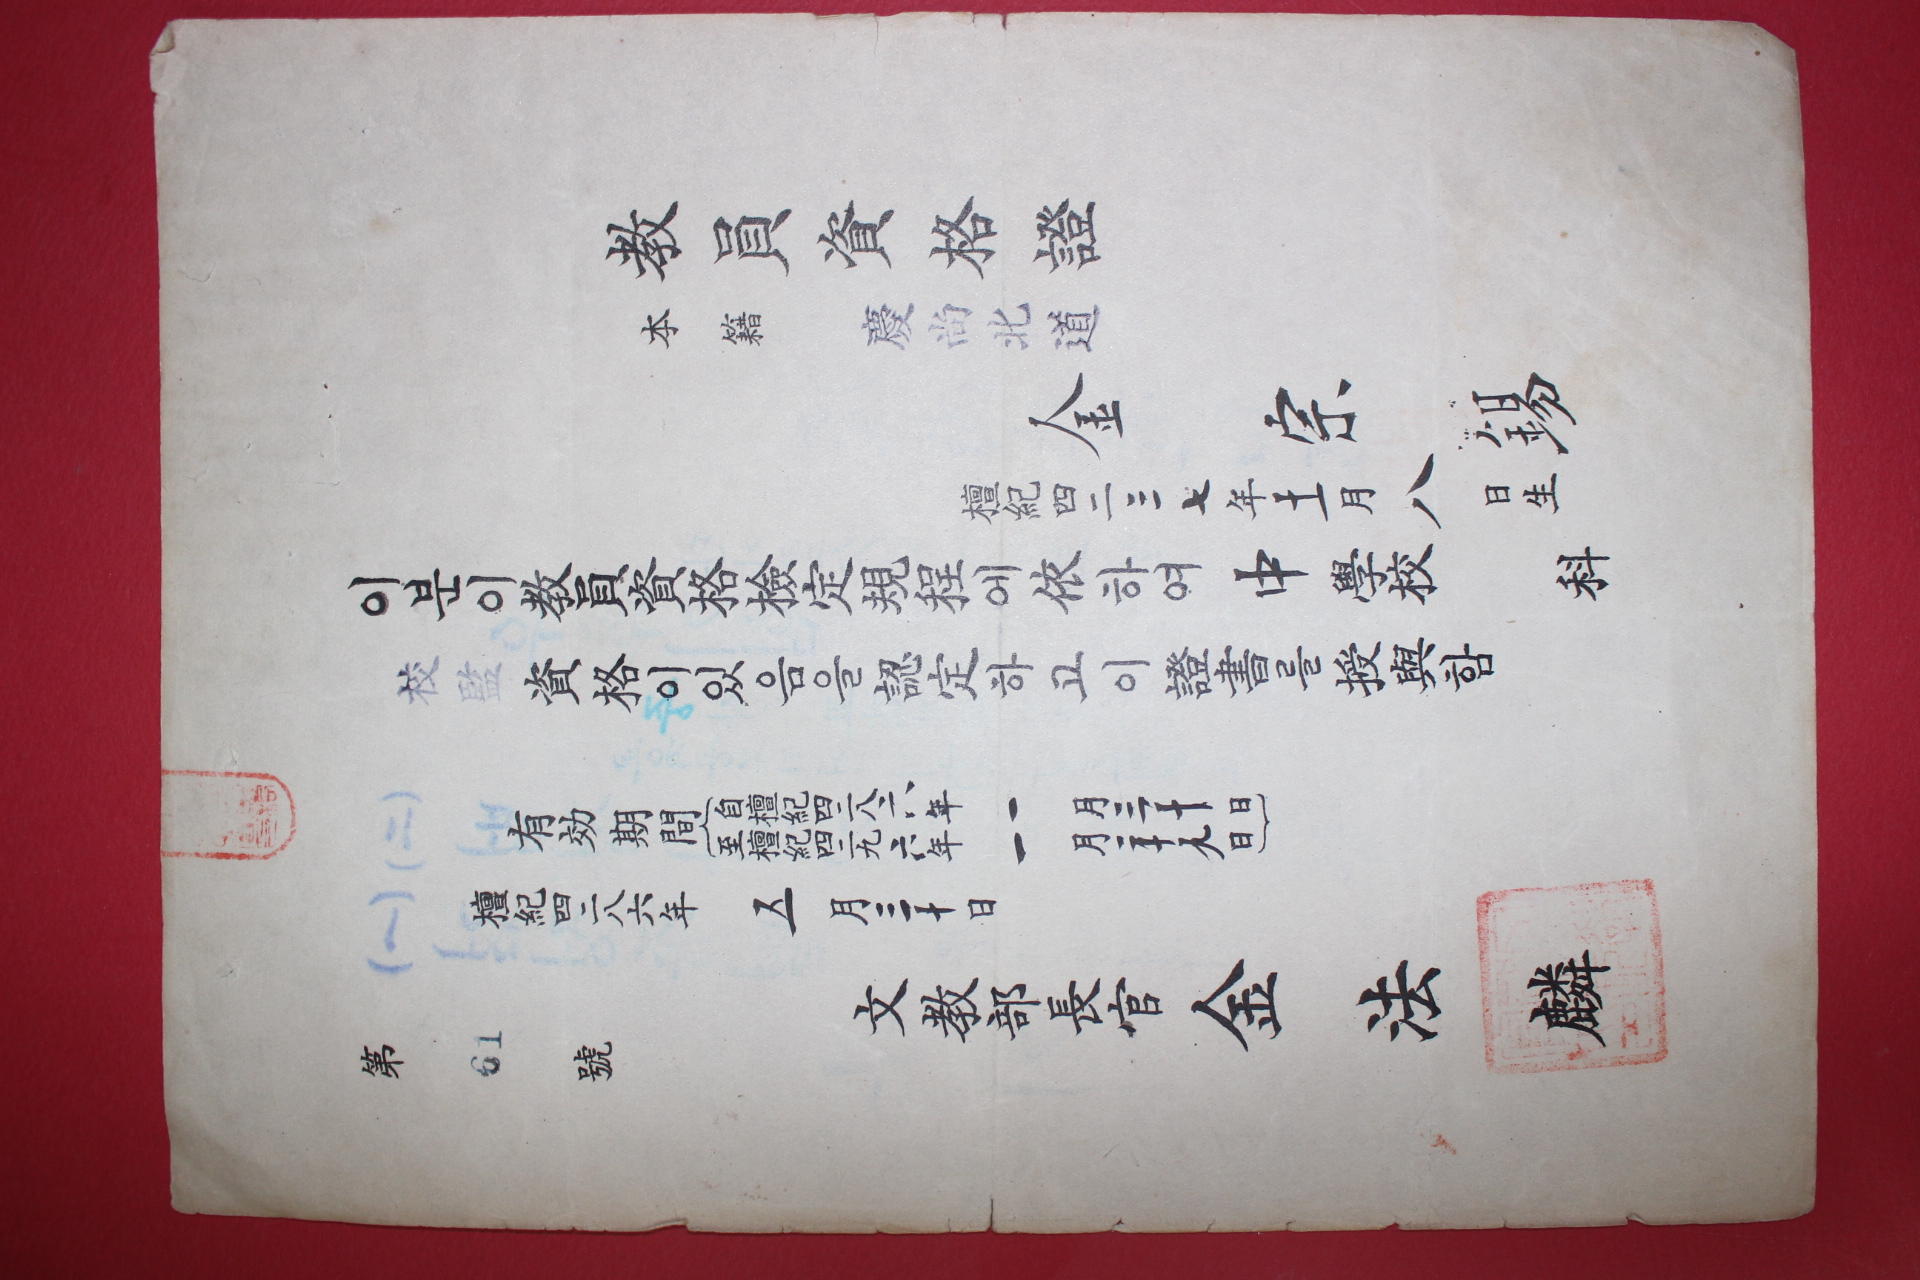 敎員資格證
本籍 慶尙北道
金宗錫
檀紀四二三七年十一月八日生
이분이敎員資格檢定規程에依하여 中學校 科
校監資格이있음을認定하고이證書를授與함
有効期間
自檀紀四二八六年一月三十日
至檀紀四二九六年一月二十九日
檀紀四二八六年 五月三十日
文敎部長官 金法麟
第 61 號